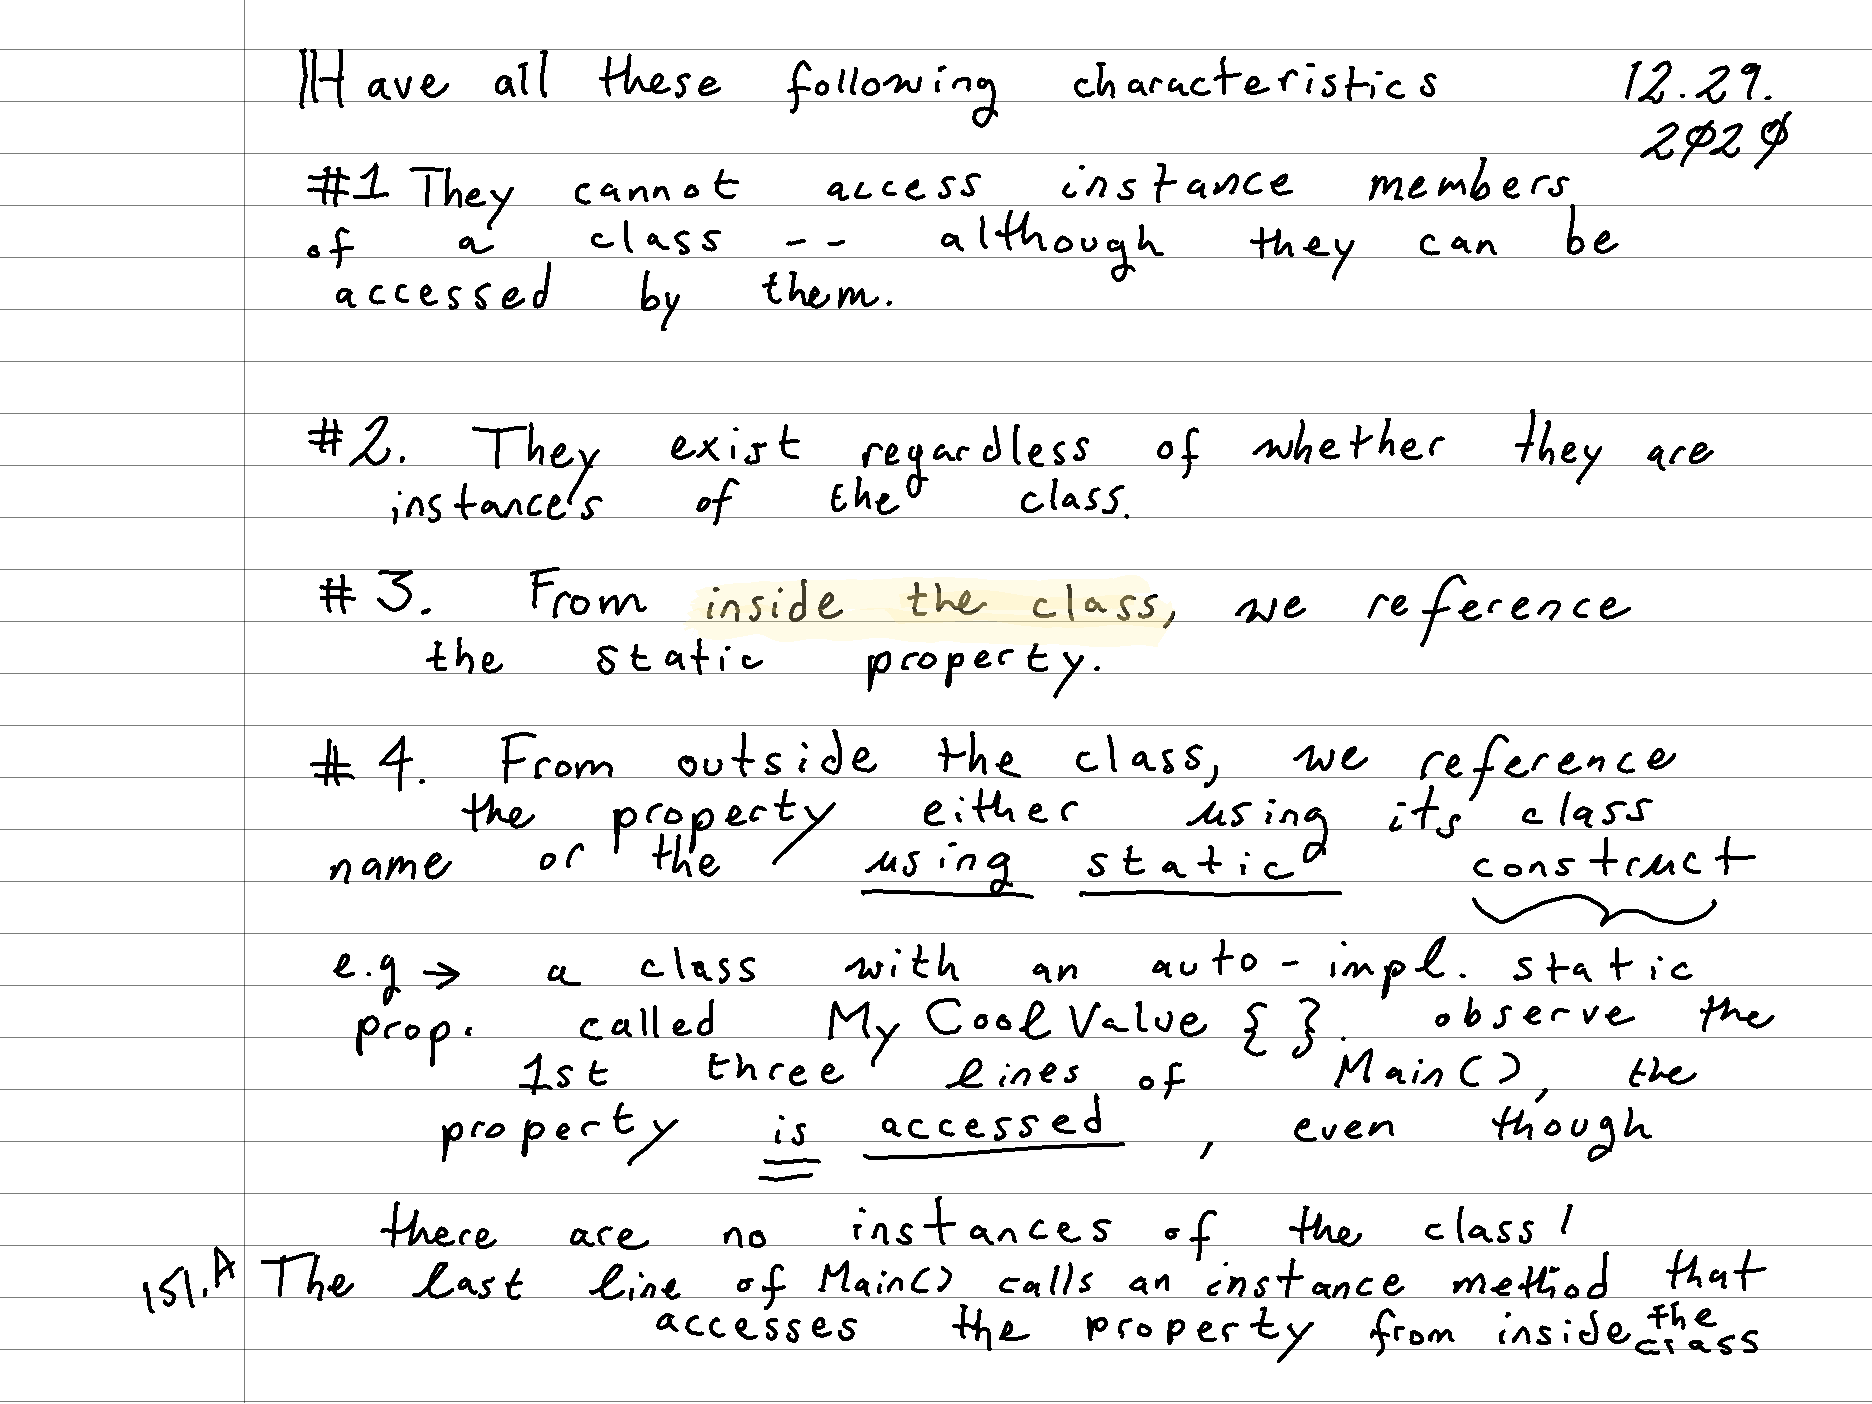 Have all these following characteristics 12.29.
2020
#1 They cannot access instance members
of a class -- although they can be
accessed by them.
#2. They exist regardless of whether they are
instances of the class.
#3. From inside the class, we reference
the static property.
#4. From outside the class, we reference
the property either using its class
name or the using static construct
e.g → a class with an auto-impl. static
prop. called MyCoolValue { }. observe the
1st three lines of Main(), the
property is accessed, even though
there are no instances of the class!
151.A The last line of Main() calls an instance method that
accesses the property from inside the
class